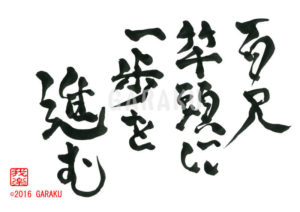 百尺
竿頭に
一歩を
進む
GARAKU
我楽
©2016 GARAKU